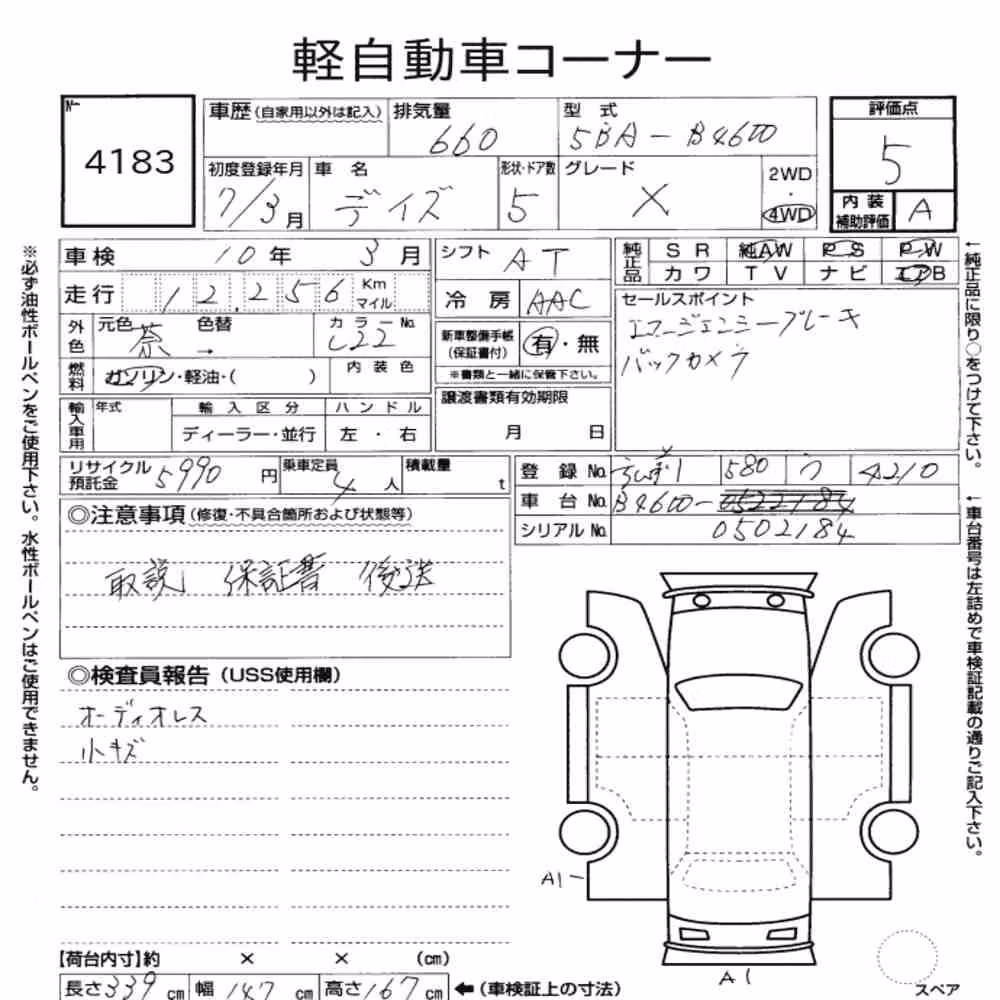 軽自動車コーナー
No.
4183
車歴(自家用以外は記入)
排気量
660
型 式
5BA-B46W
評価点
5
初度登録年月
7/3月
車 名
デイズ
形状・ドア数
5
グレード
X
2WD
・
4WD
内 装
補助評価
A
車検 10年 3月
シフト AT
純正品
SR 純AW PS PW
カワ TV ナビ エアB
走行 12,256 Km マイル
冷 房 AAC
セールスポイント
エマージェンシーブレーキ
バックカメラ
外色
元色 茶 色替 →
カラーNo.
新車整備手帳
(保証書付)
有・無
※書類と一緒に保管下さい。
燃料
ガソリン・軽油・( )
内 装 色
譲渡書類有効期限
月 日
輸入車用
年式
輸 入 区 分
ディーラー・並行
ハ ン ド ル
左 ・ 右
リサイクル預託金 5990円
乗車定員 4人
積載量 t
登 録 No. 580 う 4210
車 台 No. B46W-0522184
シリアル No. 0502184
◎注意事項(修復・不具合箇所および状態等)
取説 保証書 後送
◎検査員報告(USS使用欄)
オーディオレス
小キズ
A1
A1
【荷台内寸】約 × × (cm)
長さ339cm 幅147cm 高さ167cm
←(車検証上の寸法)
スペア
※必ず油性ボールペンをご使用下さい。水性ボールペンはご使用できません。
←純正品に限り○をつけて下さい。
←車台番号は左詰めで車検証記載の通りご記入下さい。